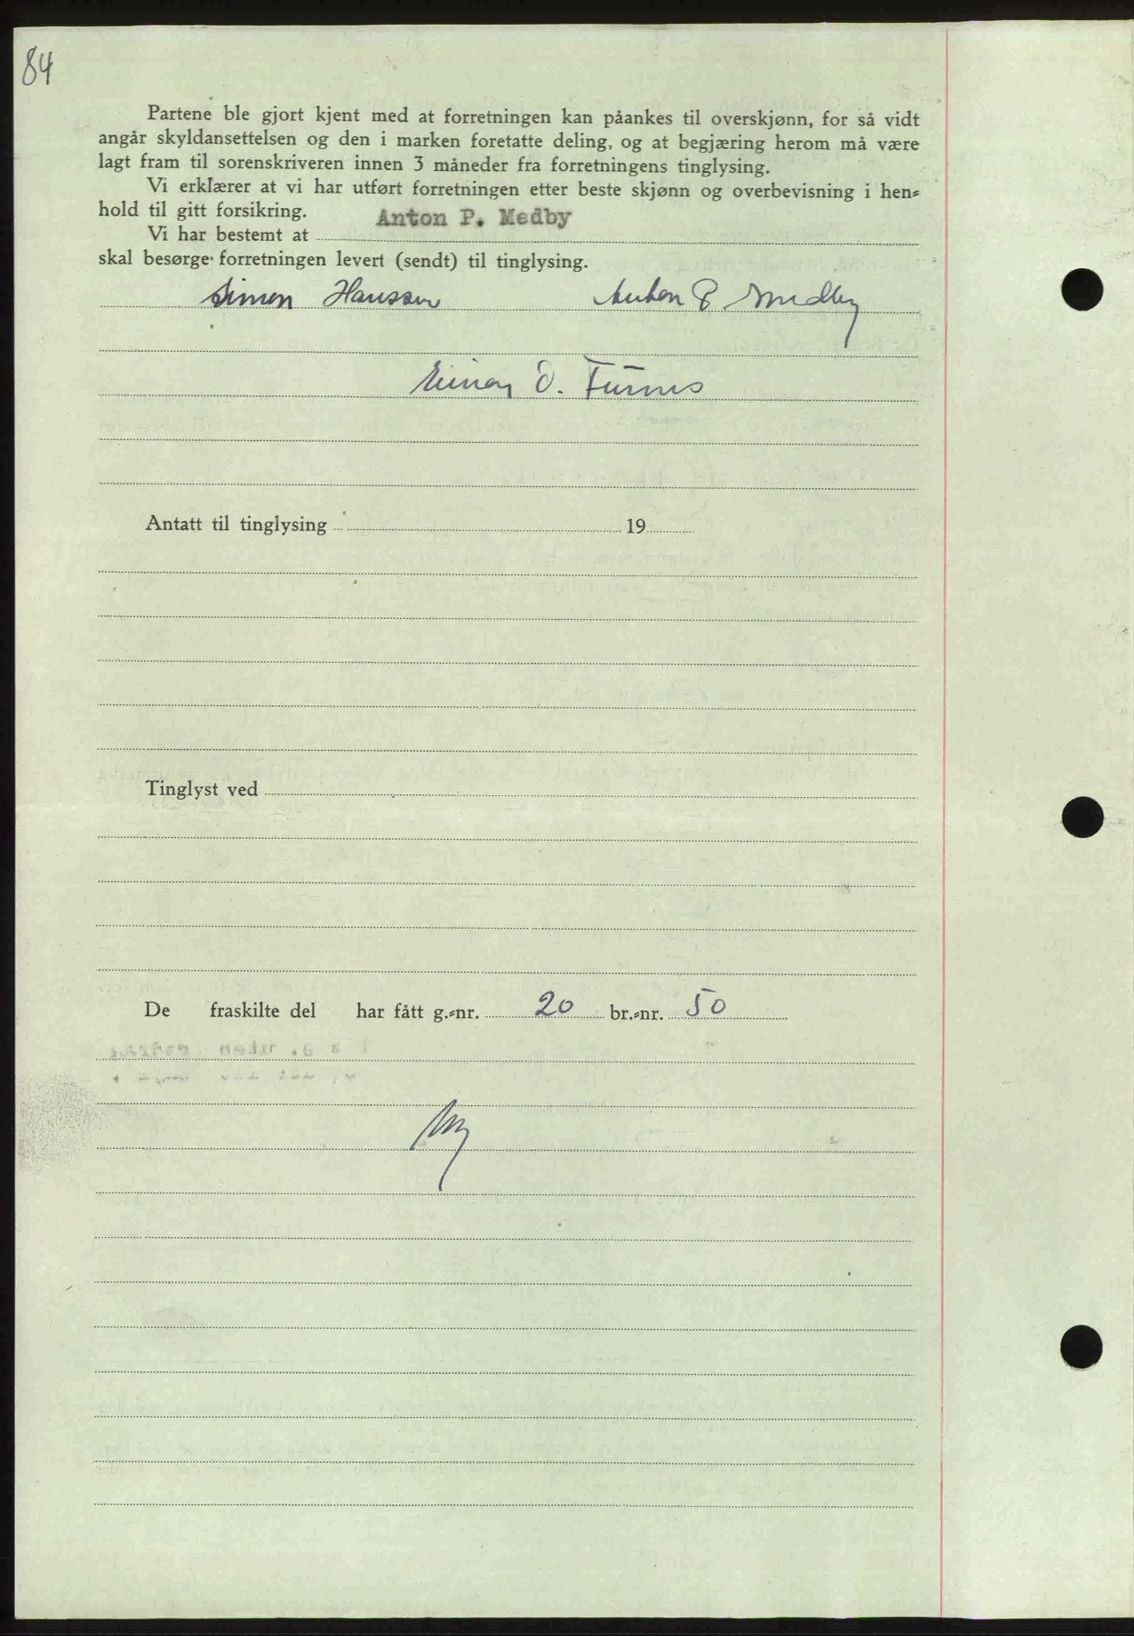 84
Partene ble gjort kjent med at forretningen kan påankes til overskjønn, for så vidt
angår skyldansettelsen og den i marken foretatte deling, og at begjæring herom må være
lagt fram til sorenskriveren innen 3 måneder fra forretningens tinglysing.
Vi erklærer at vi har utført forretningen etter beste skjønn og overbevisning i hen-
hold til gitt forsikring.
Vi har bestemt at Anton P. Medby
skal besørge forretningen levert (sendt) til tinglysing.
Simon Hanssen Anton P Medby
Einar O. Furnes
Antatt til tinglysing 19
Tinglyst ved
De fraskilte del har fått g.-nr. 20 br.-nr. 50